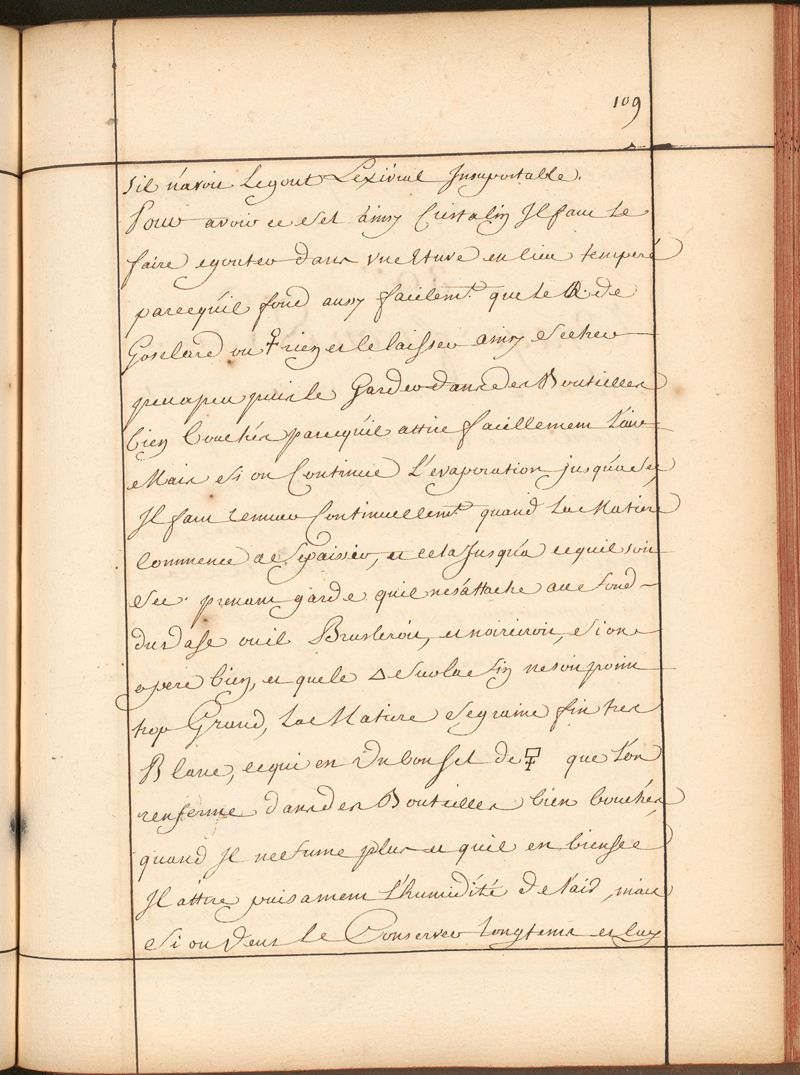 109
s'il n'avoit le gout Lexivial Insuportable.
Pour avoir ce Sel ainsy Cristalin Il faut le
faire egouter dans vne Etuve en lieu temperé
parcequ'il fond ausy facilemt. que le de
Goselard ou et le laisser ainsy Secher
peu a peu puis le Garder dans des Bouteilles
bien bouchés parcequ'il attire facillement L'air
Mais Si on Continue L'evaporation jusqu'a Sec,
Il faut remuer Continuellemt. quand La Matiere
Commence a S'Epaissir, et cela Jusqu'a ce quil soit
Sec. prenant garde quil ne s'attache au fond
du Vase ou il Brusleroit, et noirciroit, Si on
opere bien, et que le △ Sur la fin ne soit point
trop Grand, La Matiere Se graine fin tres
Blanc, ce qui est Un bon Sel de que L'on
renferme dans des Bouteilles bien bouchés
quand Il ne fume plus et quil est bien Sec
Il attire puisament L'humidité De l'air, mais
Si on Veut le Conserver longtems et Luy